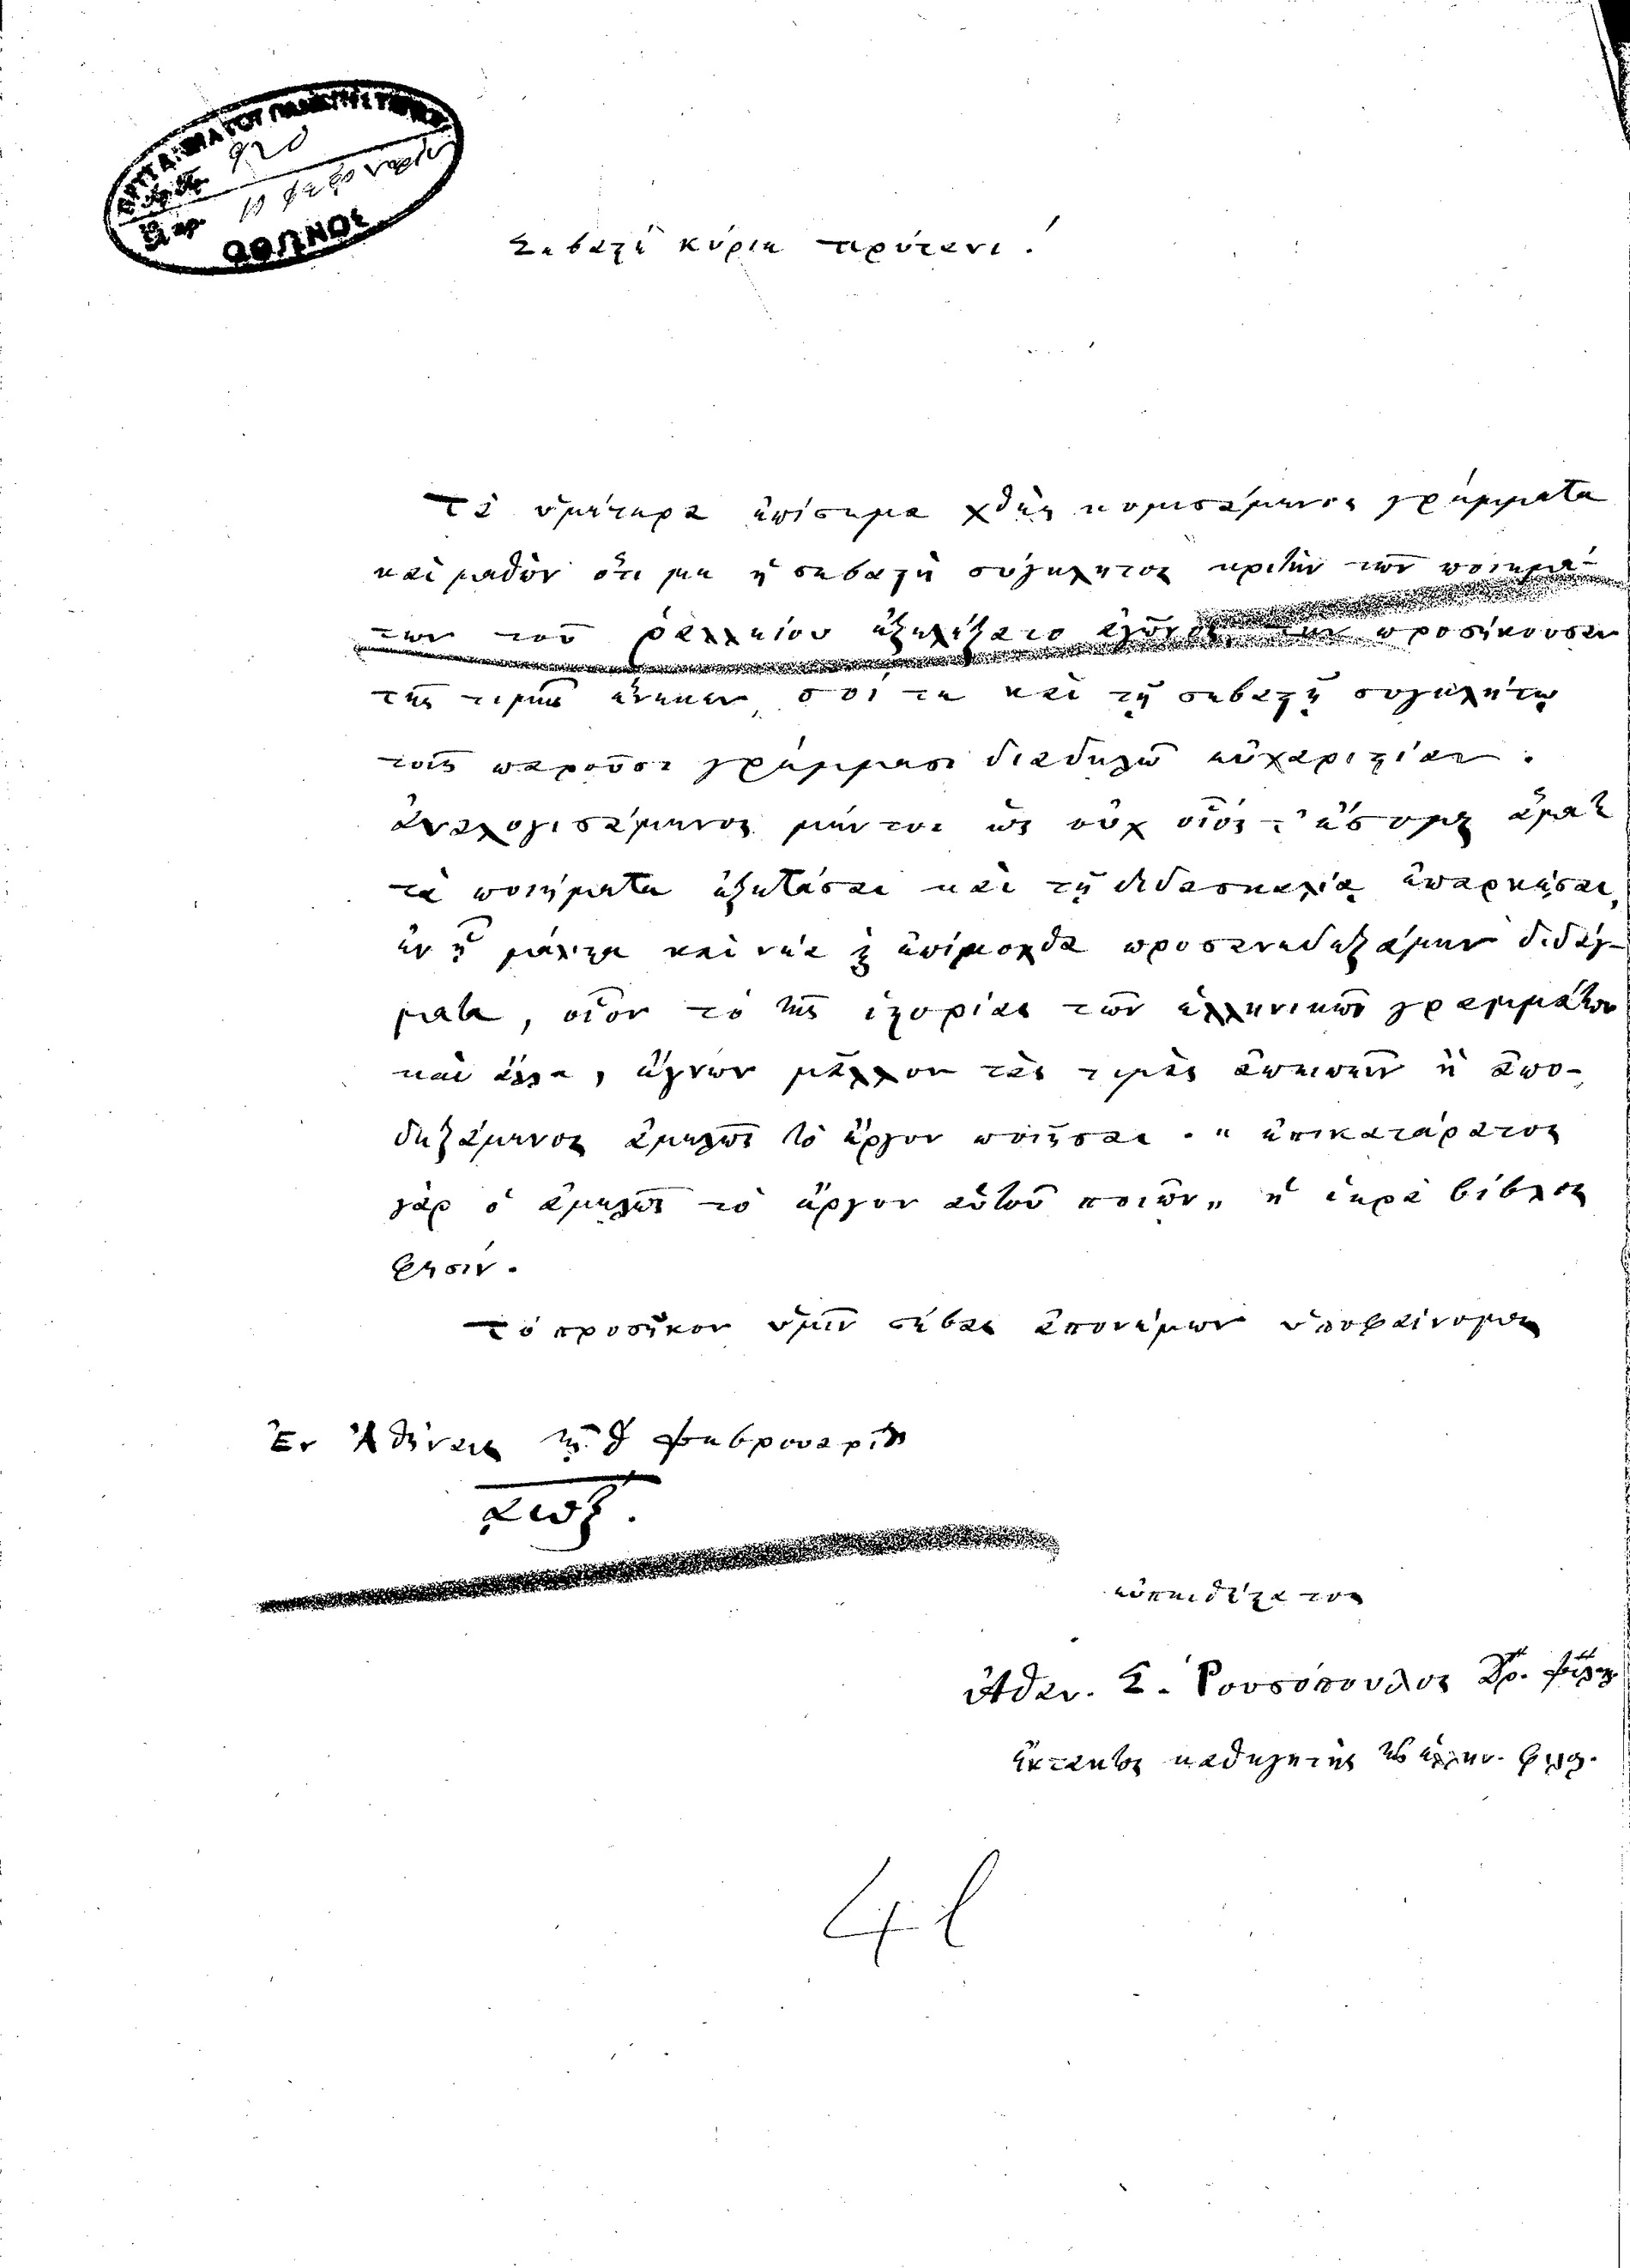 ΠΡΥΤΑΝΕΙΑ ΤΟΥ ΠΑΝΕΠΙΣΤΗΜΙΟΥ
920
10
ΟΘΩΝΟΣ
Σεβαστὲ κύριε πρύτανι!
Τὰ ὑμέτερα ἐπίσημα χθὲς κομισάμενος γράμματα
καὶ μαθὼν ὅτι με ἡ σεβαστὴ σύγκλητος κριτὴν τῶν ποιημά-
των τοῦ ῥαλλείου ἐξελέξατο ἀγῶνος, τὴν προσήκουσαν
τῆς τιμῆς ἕνεκεν, σοί τε καὶ τῇ σεβαστῇ συγκλήτῳ
τοῖς παροῦσι γράμμασι διαδηλῶ εὐχαριστίαν.
ἀναλογισάμενος μέντοι ὡς οὐχ οἷός τ' ἔσομαι ἅμα
τὰ ποιήματα ἐξετάσαι καὶ τῇ διδασκαλίᾳ ἐπαρκέσαι,
ἐν ᾗ μάλιστα καὶ νέα ἐπίμοχθα προσανεδεξάμην διδάγ-
ματα, οἷον τὸ τῆς ἱστορίας τῶν ἑλληνικῶν γραμμάτων
καὶ ἄλλα, ἔγνων μᾶλλον τὰς τιμὰς ἀπειπεῖν ἢ ἀπο-
δεξάμενος ἀμελῶς τὸ ἔργον ποιῆσαι. „ ἐπικατάρατος
γὰρ ὁ ἀμελῶς τὸ ἔργον αὑτοῦ ποιῶν„ ἡ ἱερὰ βίβλος
φησίν.
Τὸ προσῆκον ὑμῖν σέβας ἀπονέμων ὑποφαίνομαι
Ἐν Ἀθήναις τῇ θ Φεβρουαρίου
αωξ.
εὐπειθέστατος
Ἀθαν. Σ. Ῥουσόπουλος Δρ. Φιλ.
ἔκτακτος καθηγητὴς τῆς ἑλλην. φιλολ.